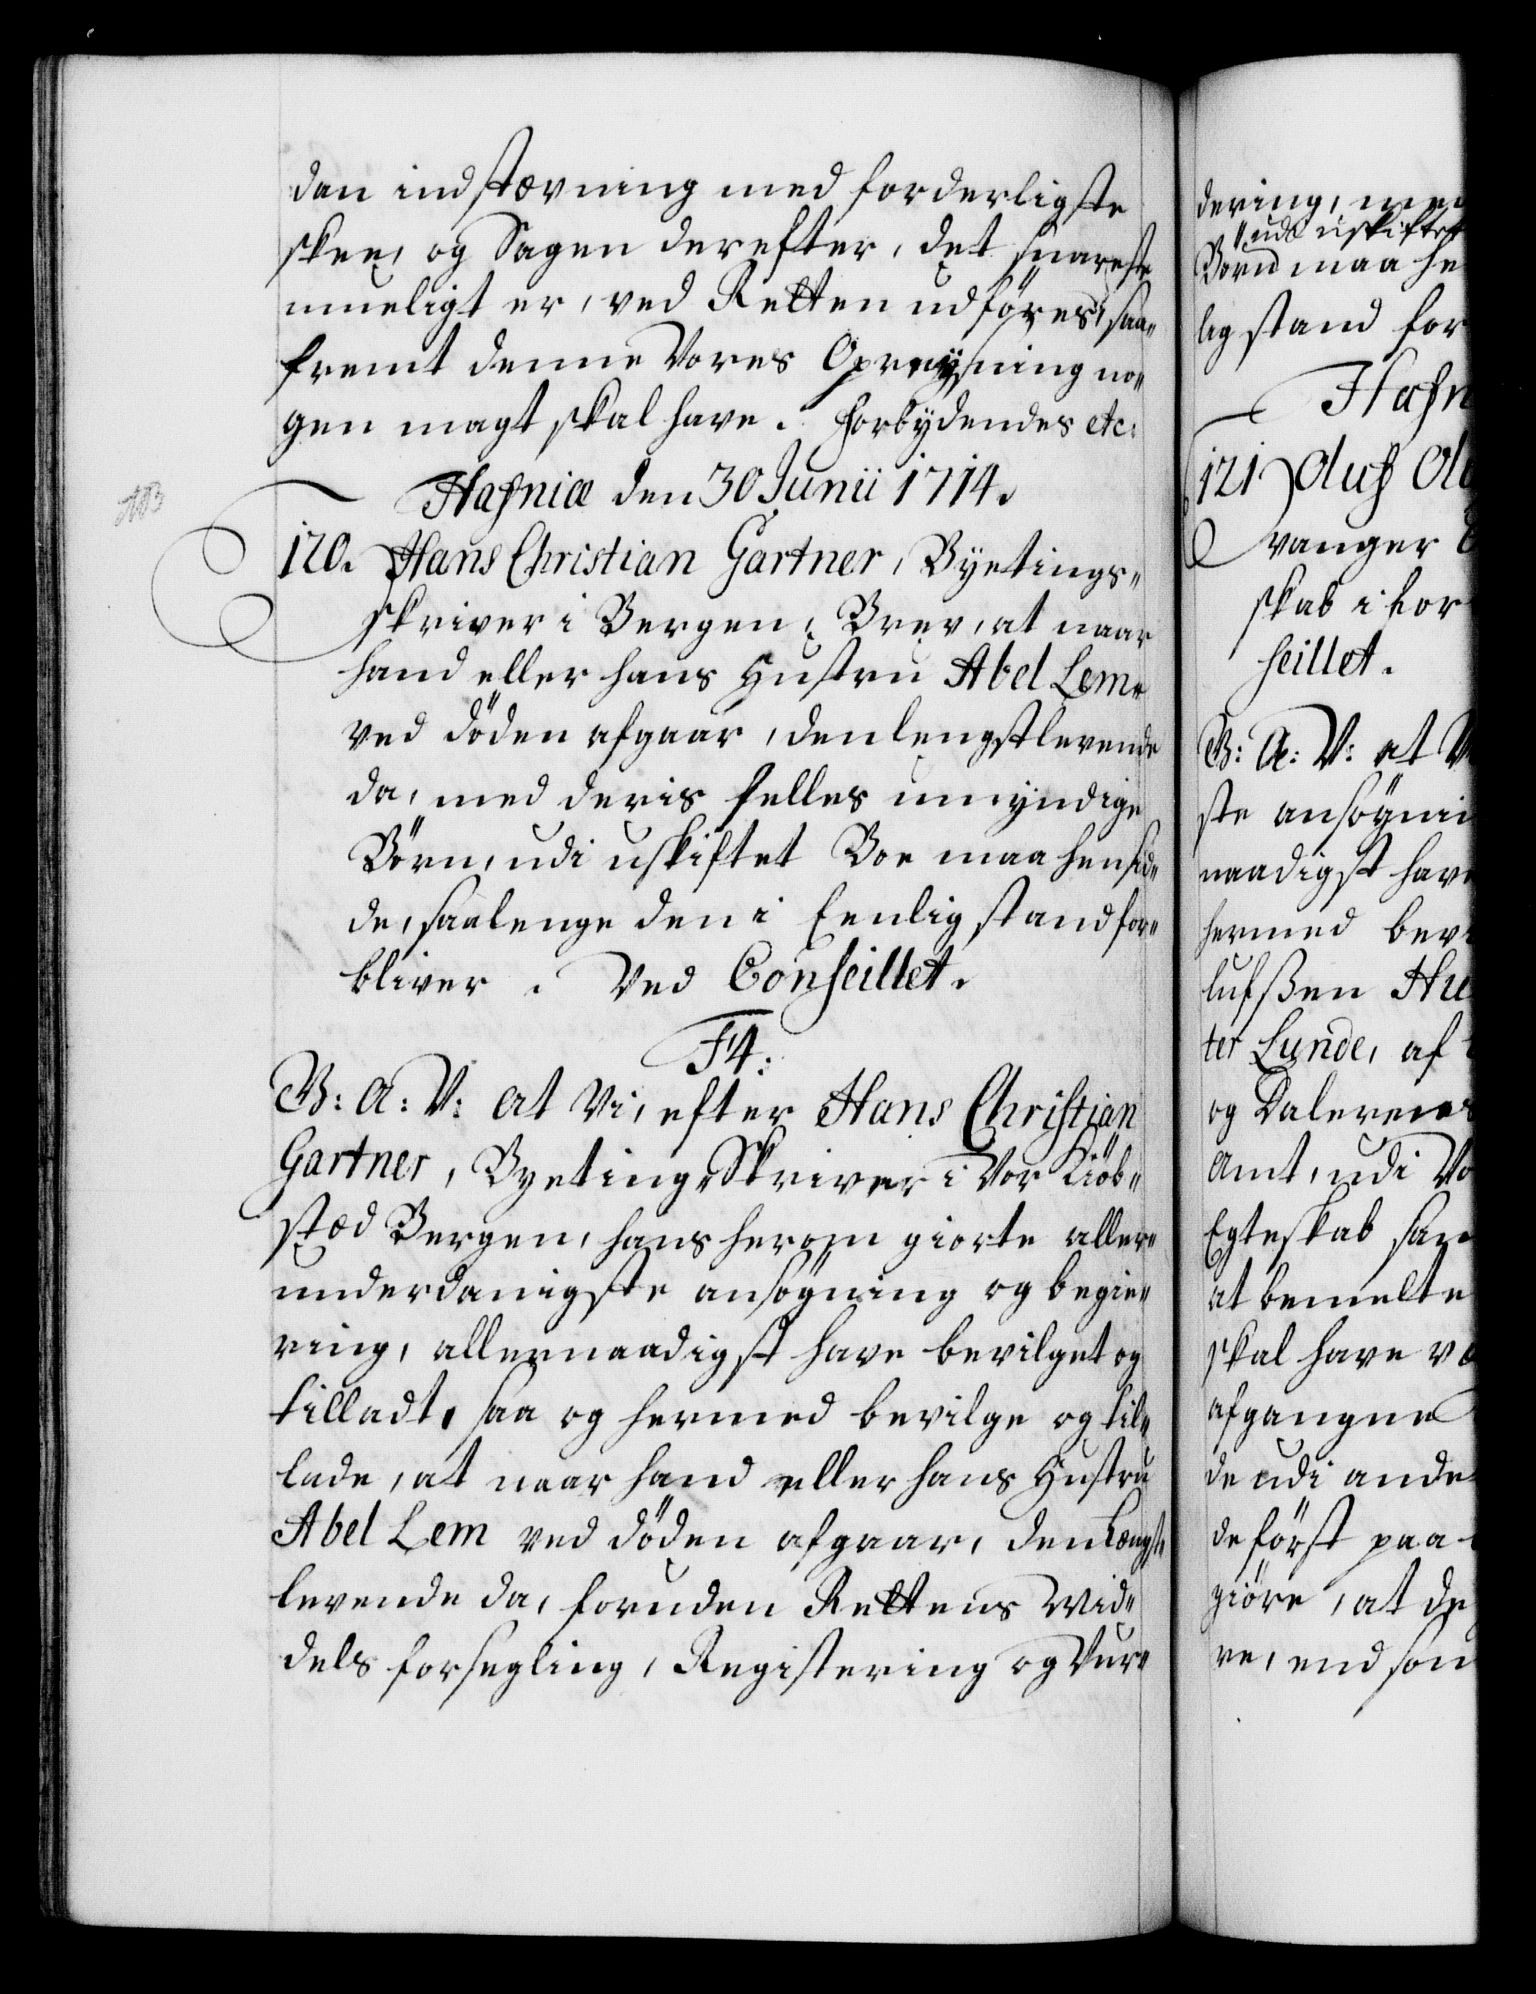 dan indstævning med forderligste
skee, og Sagen derefter, det snareste
mueligt er, ved Retten udföres, saa„
fremt denne Vores Opreysning no„
gen magt skal have. Forbydendes etc:
Hafniæ den 30 Junii 1714.
120. Hans Christian Gartner, Byetings„
skriver i Bergen, Brev, at naar
hand eller hans Hustru Abel Lem
ved döden afgaar, den lengstlevende
da, med deris felles umyndige
Börn, udi uskiftet Boe maa hensid„
de, saalenge den i Eenlig stand for„
bliver. Ved Conseillet.
F4:
G: A: V: at Vi, efter Hans Christian
Gartner, Byetings Skriver i Vor Kiöb„
stæd Bergen, hans herom giorte aller„
underdanigste ansögning og begie„
ring, allernaadigst have bevilget og
tilladt, saa og hermed bevilge og til„
lade, at naar hand eller hans Hustru
Abel Lem ved döden afgaar, den Længst
levende da, foruden Rettens Mid„
dels forsegling, Registering og Vur„
dering, med
udi uskiftet
Börn maa he
lig stand for
Hafn
121. Oluf Ol
vanger
skab i for
seillet.
G: A: V: at V
ste ansögni
naadigst have
hermed bev
lufßen Hu
ter Lunde, af
og Dalernes
Amt, udi Vo
Egteskab sam
at bemelte
skal have væ
afgangne
de udi ande
de först paa
giöre, at de
re, end som